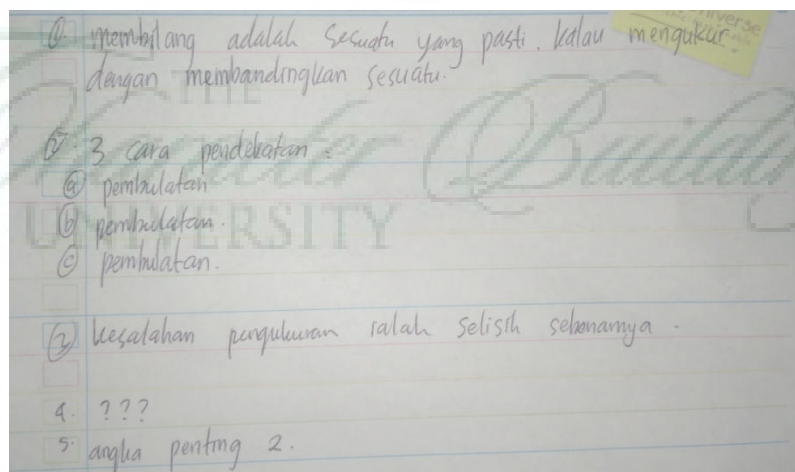 1. membilang adalah sesuatu yang pasti. kalau mengukur
dengan membandingkan sesuatu.
2. 3 cara pendekatan :
a pembulatan
b pembulatan.
c pembulatan.
3 kesalahan pengukuran ialah selisih sebenarnya.
4. ???
5. angka penting 2.
THE
Character Building
UNIVERSITY